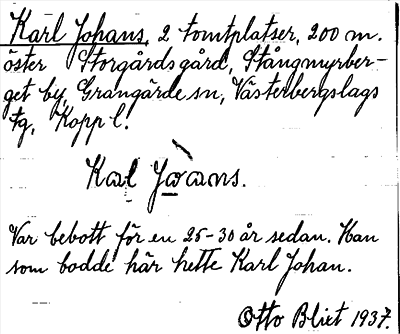 Karl Johans, 2 tomtplatser, 200 m.
öster Storgårdsgård, Stångmyrber-
get by, Grangärde sn, Västerbergslags
fg, Kopp l.
Kal Jωans.
Var bebott för en 25-30 år sedan. Han
som bodde här hette Karl Johan.
Otto Blixt 1937.